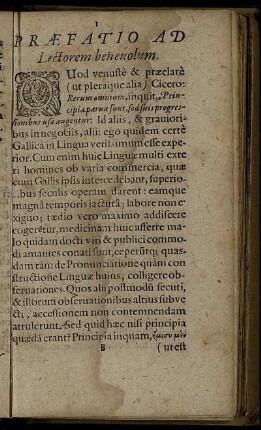 PRÆFATIO AD
Lectorem beneuolum.
QUod venustè & præclarè
(ut pleraque alia) Cicero:
Rerum omnium, inquit, Prin-
cipia parua sunt, sed suis progres-
sionibus usa augentur: Id aliis, & grauiori-
bus in negociis, alii: ego quidem certè
Gallica in Lingua verissimum esse expe-
rior. Cum enim huic Linguæ multi exte
ri homines ob varia commercia, quæ
cum Gallis ipsis intercedebant, superio-
ribus seculis operam darent: eamque
magna temporis jactura; labore non e-
xiguo; tædio vero maximo addiscere
cogerētur, medicinam huic afferre ma-
lo quidam docti viri & publici commo-
di amantes conati sunt, cœperūtq; quas-
dam tàm de Pronunciatione quàm con-
structione Linguæ huius, colligere ob-
seruationes. Quos alii postmodū secuti,
& illorum obseruationibus altius subve
cti, accessionem non contemnendam
attulerunt. Sed quid hæc nisi principia
quædā erant? Principia inquam,
B (ut est